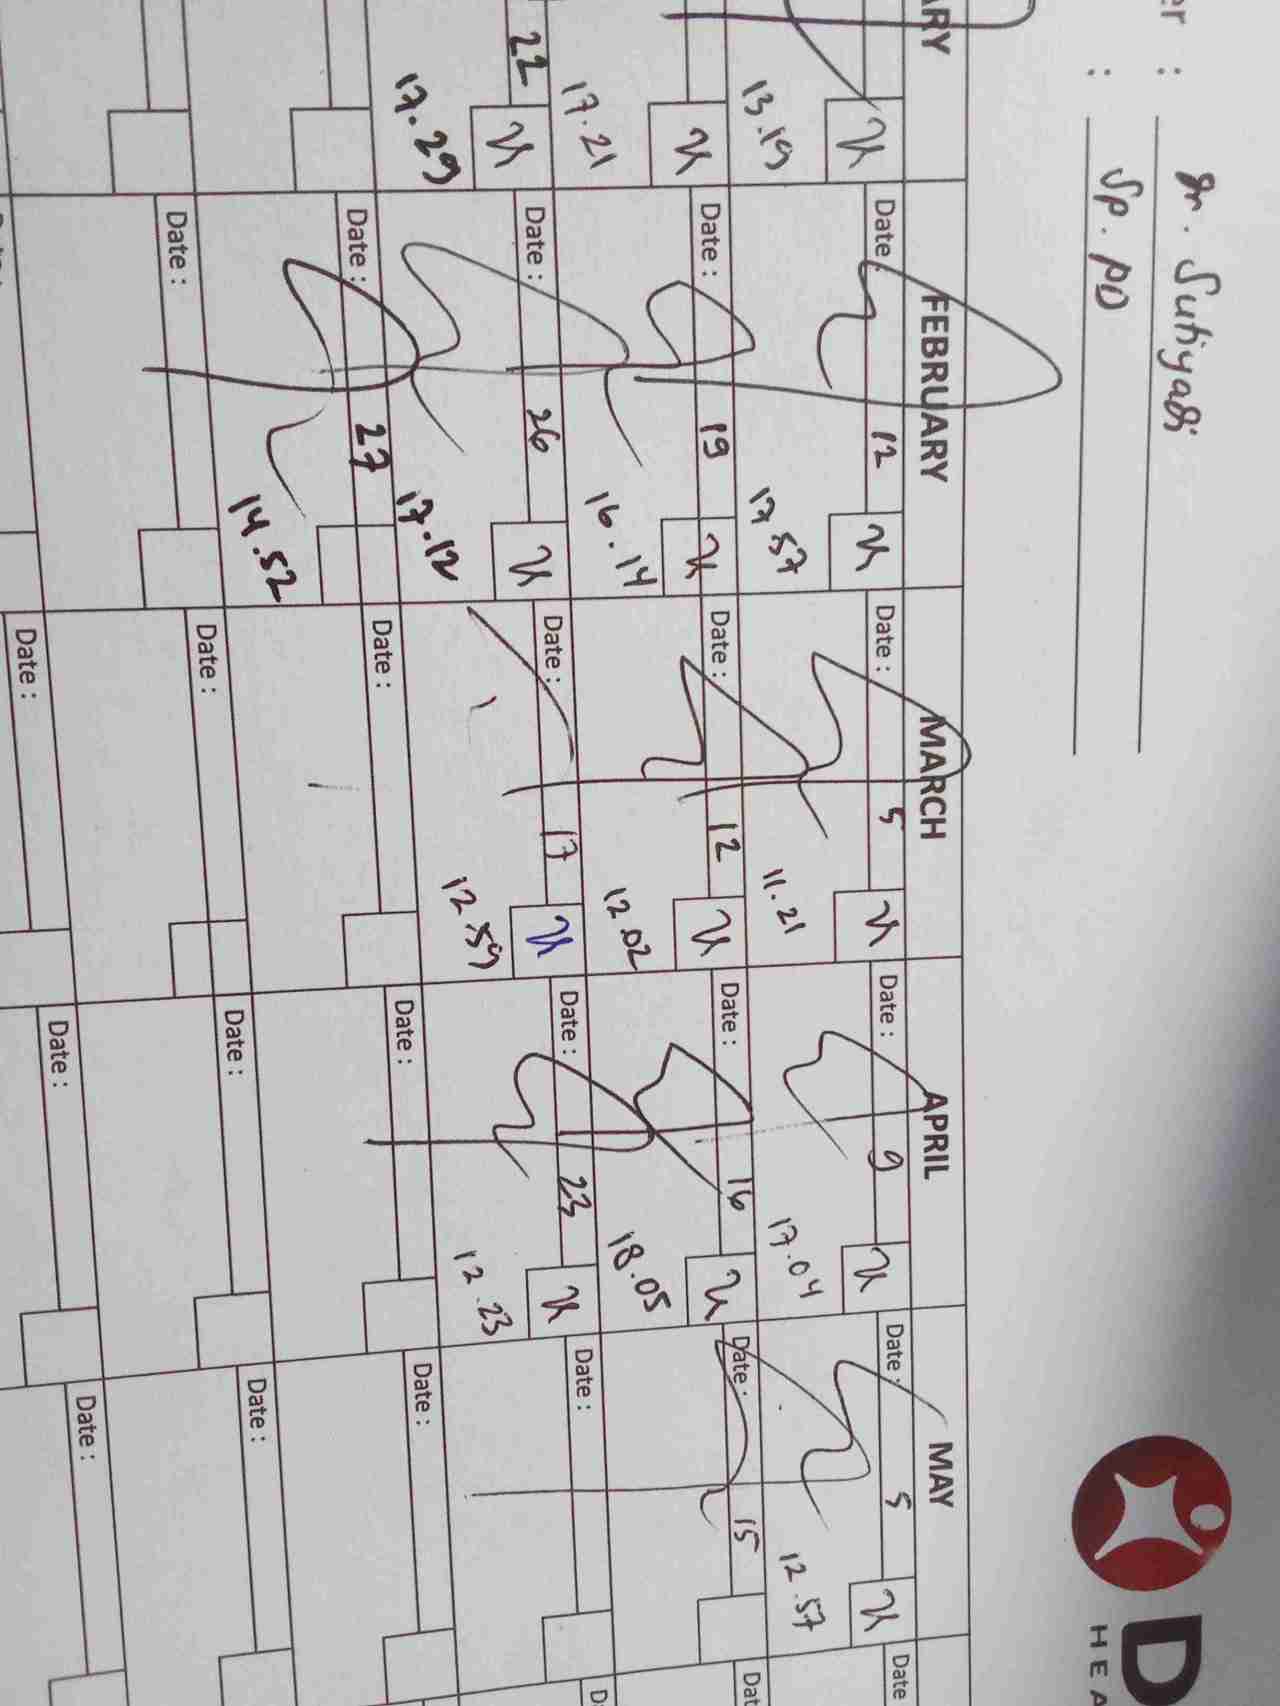 er : dr. Sutiyadi
: Sp. PD
D
HEA
ARY FEBRUARY MARCH APRIL MAY
Date : 12 Date : 5 Date : 9 Date : 5 Date
13.19 17.57 11.21 17.04 12.57
Date : 19 Date : 12 Date : 16 Date : 15 Dat
17.21 16.14 12.02 18.05
22 Date : 26 Date : 17 Date : 23 Date : D
17.29 17.12 12.59 12.23
Date : 27 Date : Date : Date :
14.52
Date : Date : Date : Date :
Date : Date : Date :